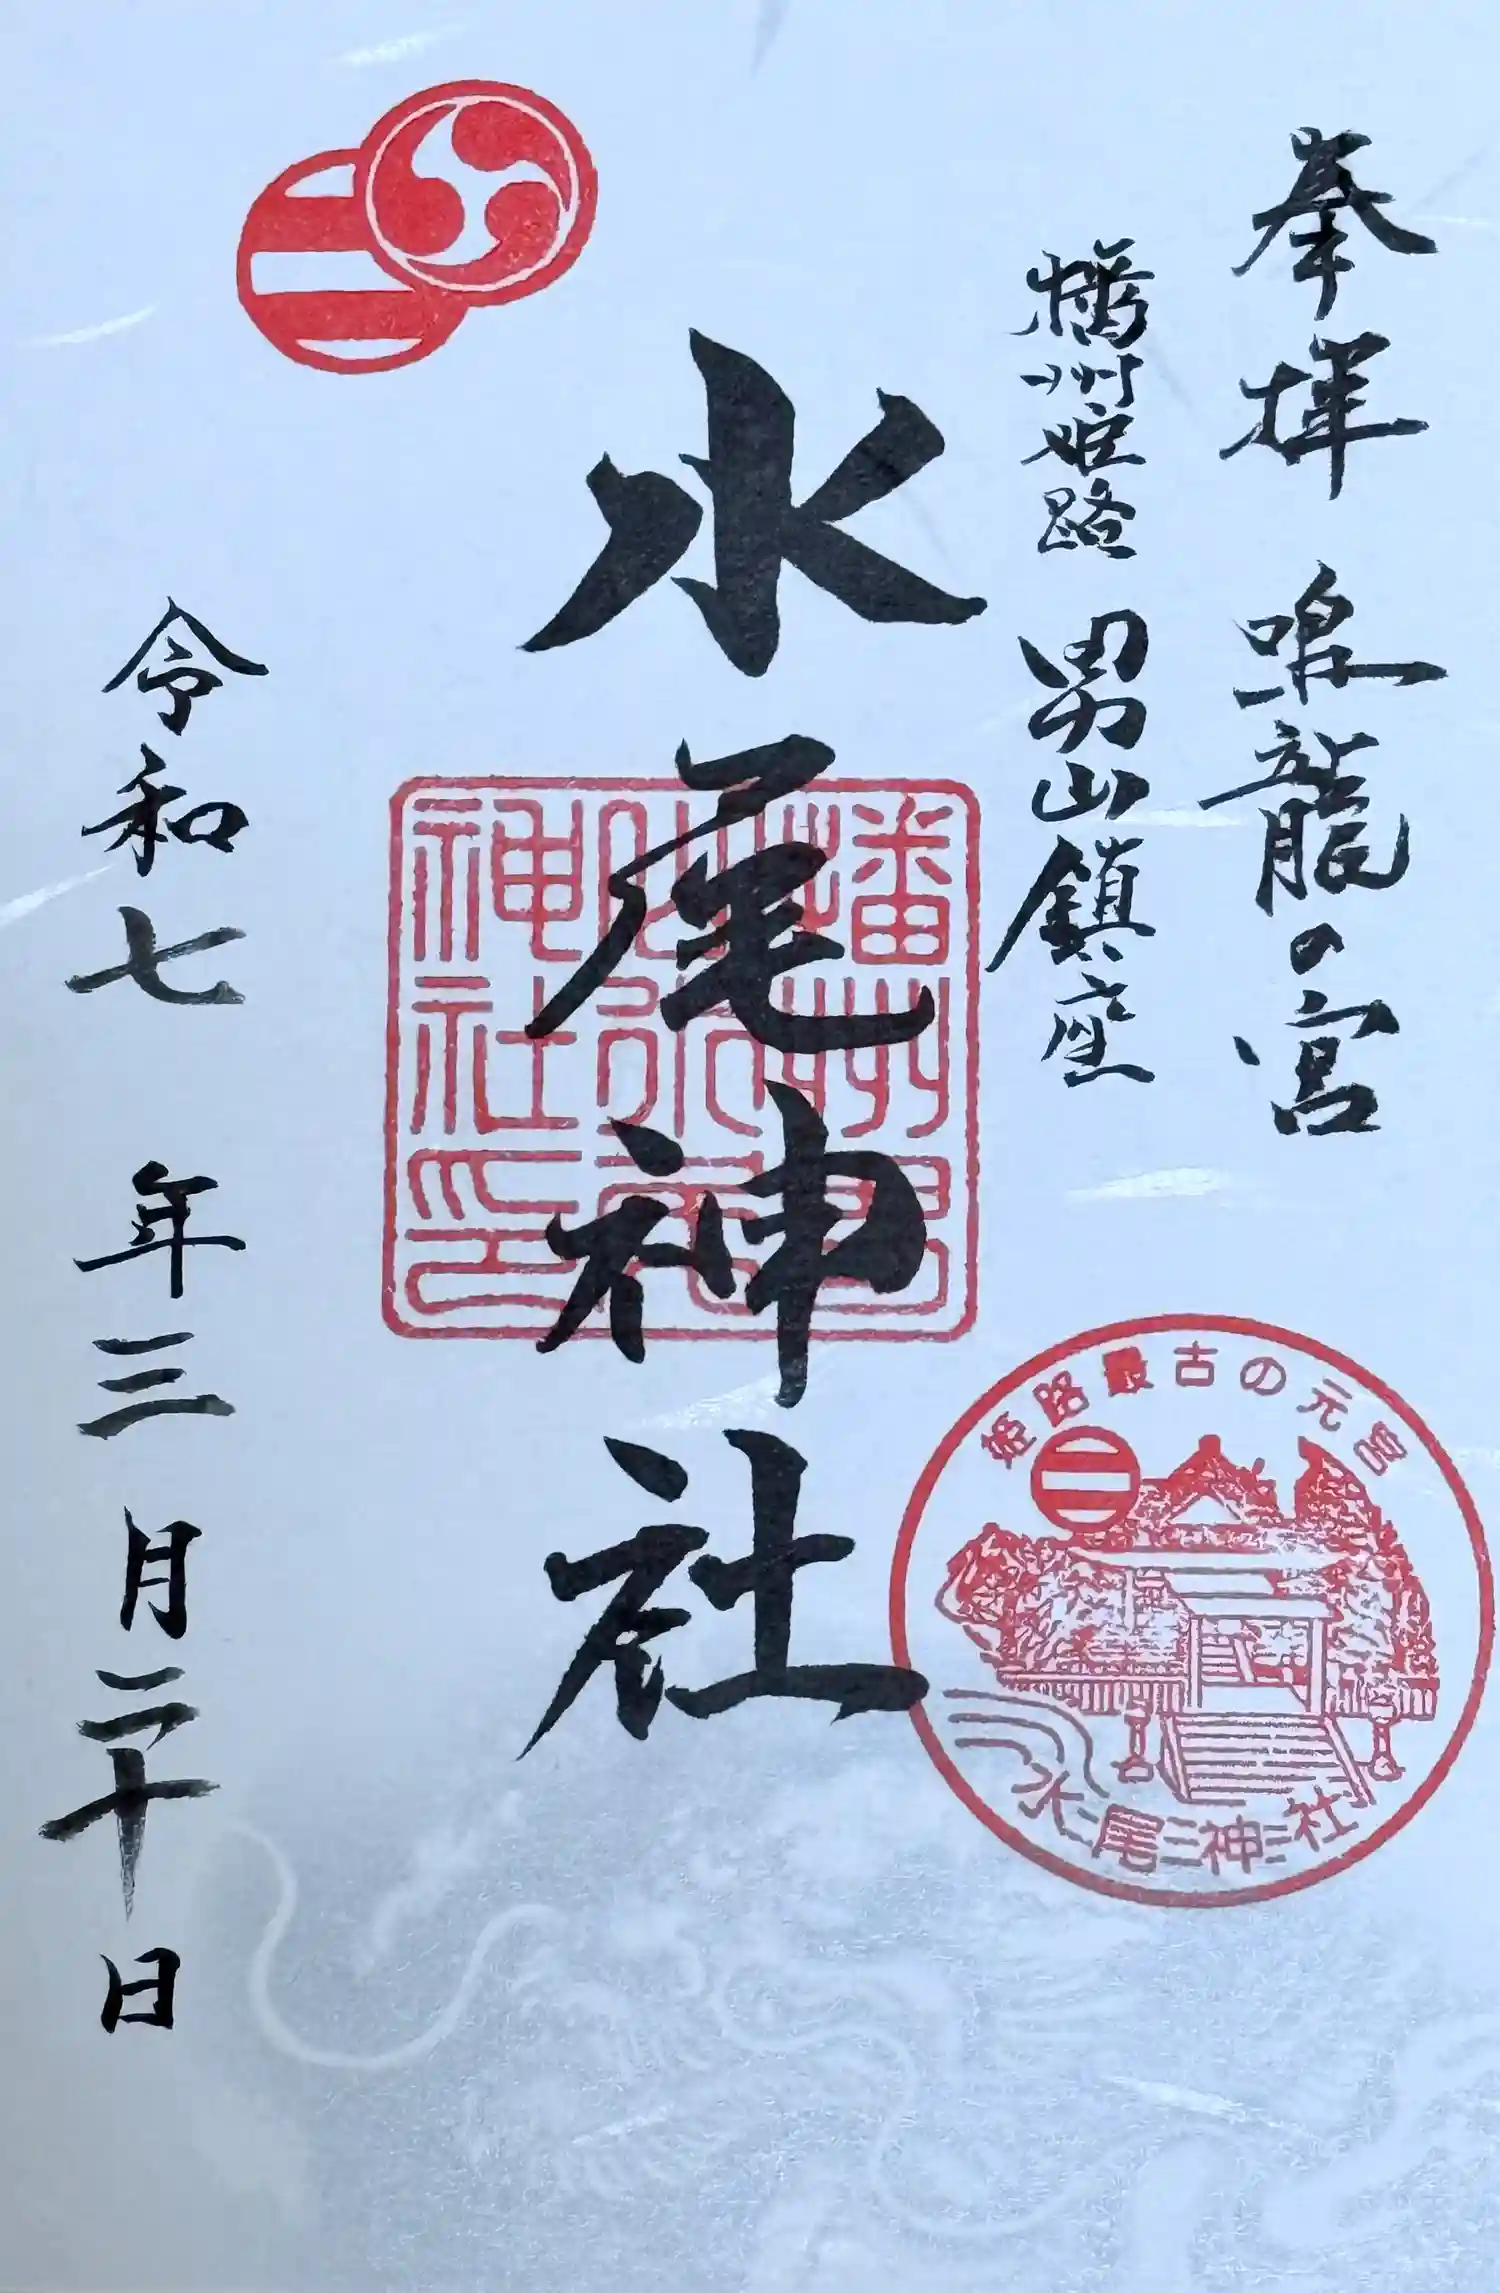 奉拝 鳴龍の宮
播州姫路 男山鎮座
水尾神社
令和七年三月二十日
播州男
山水尾
神社印
姫路最古の元宮
水尾神社